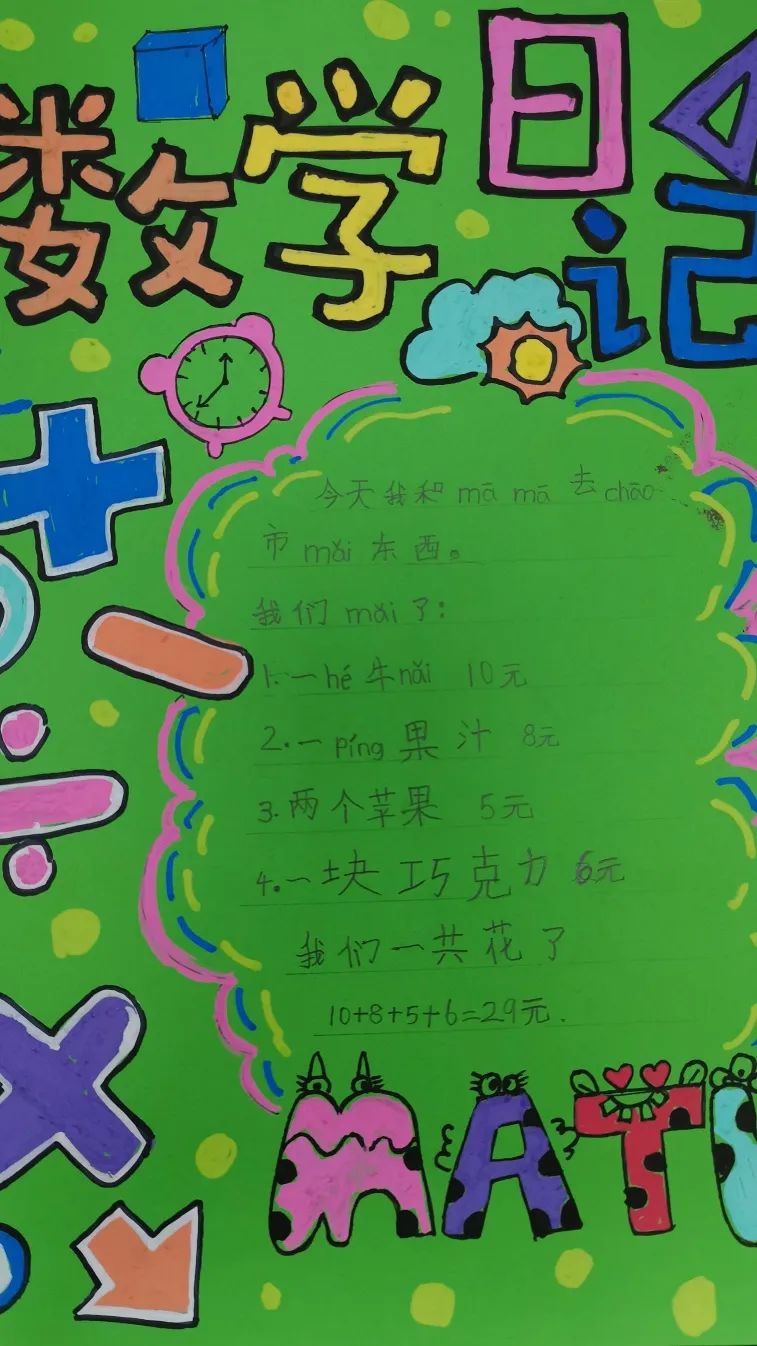 数学日记
今天我和 mā mā 去 chāo
市 mǎi 东西。
我们 mǎi 了:
1.一hé 牛nǎi 10元
2.一 píng 果汁 8元
3.两个苹果 5元
4.一块巧克力 6元
我们一共花了
10+8+5+6=29元.
MATH